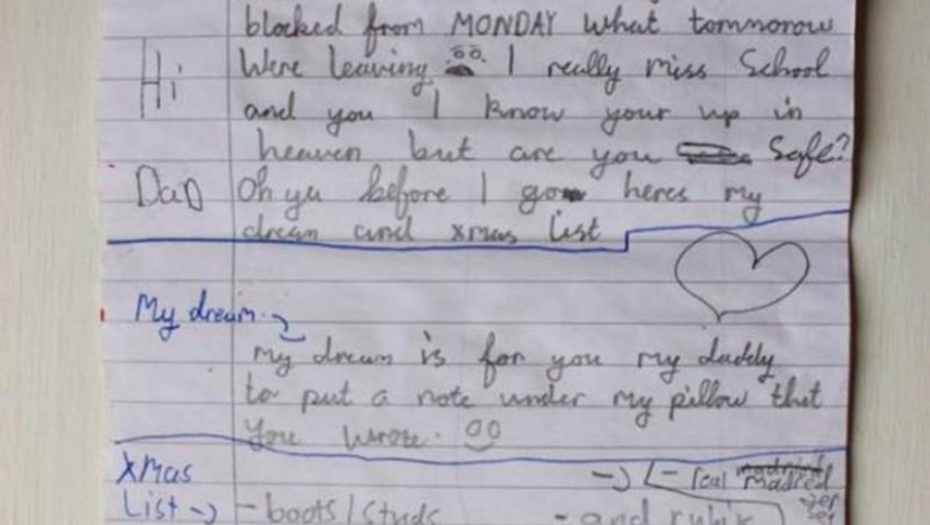 blocked from MONDAY what tommorow
Hi
Were leaving I really miss School
and you I know your up in
heaven but are you Safe?
DaD
Oh ya before I go heres my
dream and xmas list
My dream
My dream is for you my daddy
to put a note under my pillow that
you wrote.
xMas
List → - boots/studs
→ - real Madrid
- and rubix